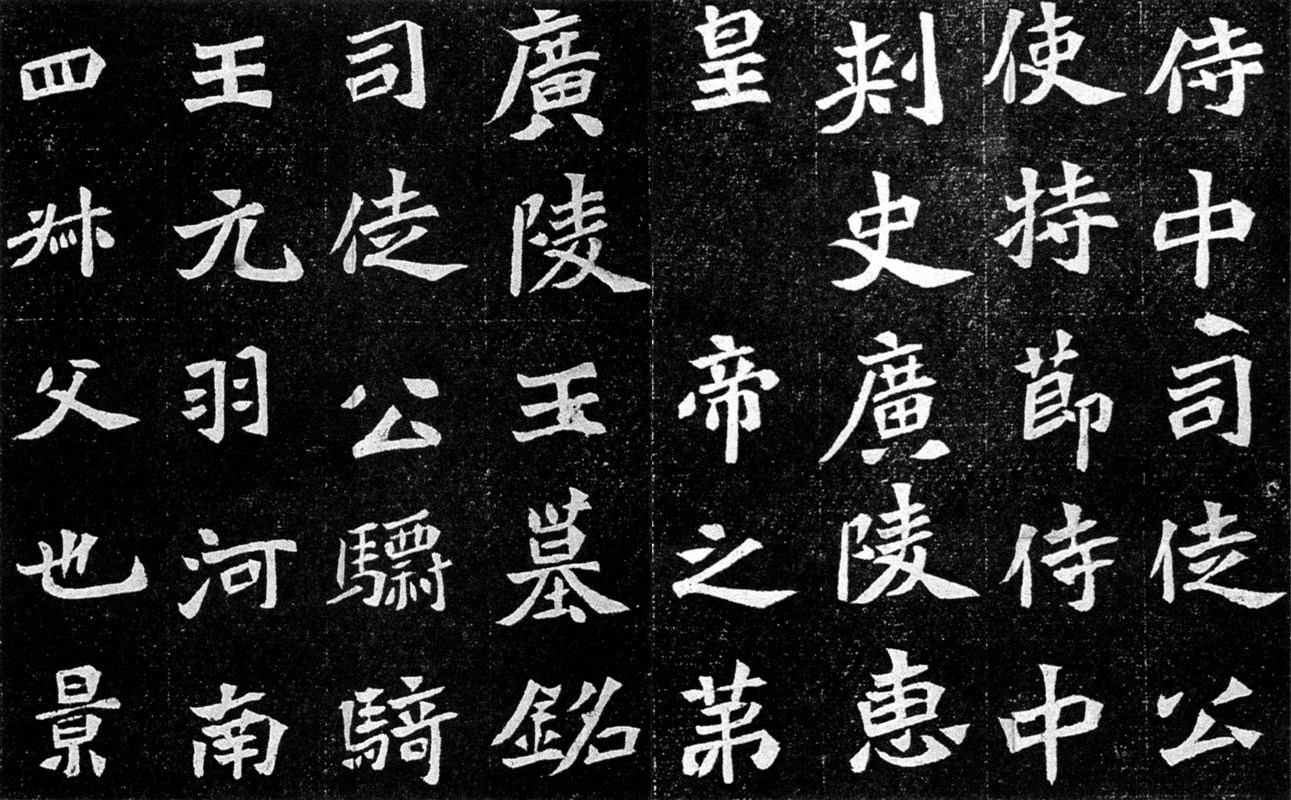 侍中司徒公
使持節侍中
刺史廣陵惠
皇帝之第
廣陵王墓銘
司徒公驃騎
王元羽河南
四叔父也景